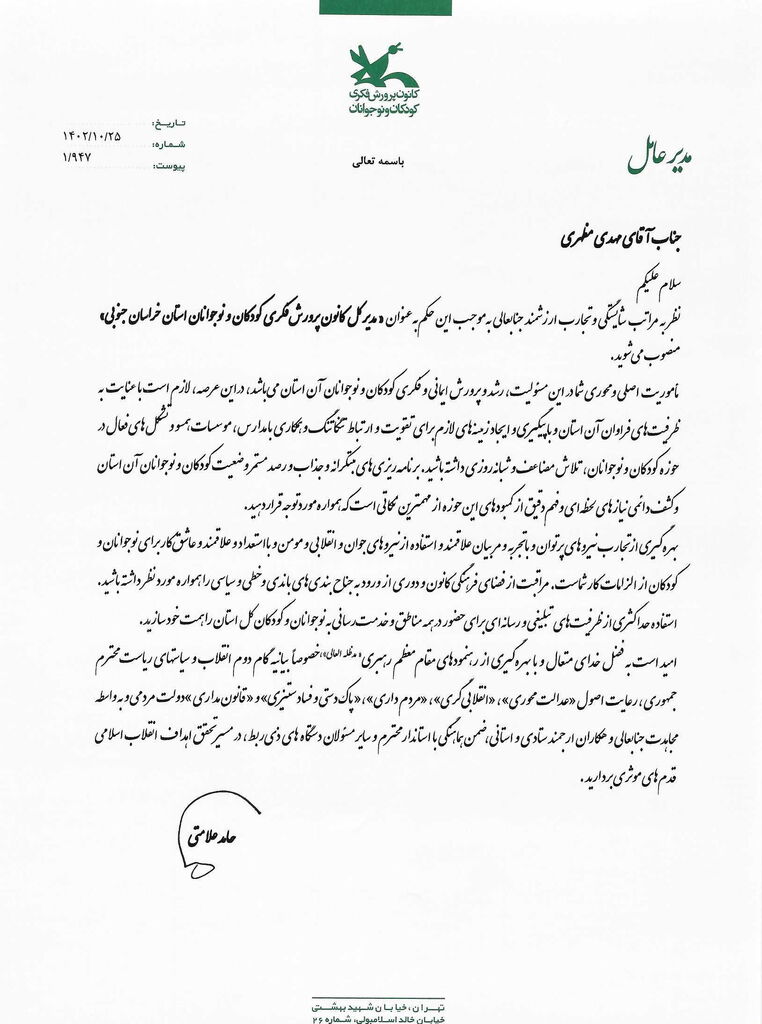 کانون پرورش فکری
کودکان و نوجوانان
تاریخ:
۱۴۰۲/۱۰/۲۵
شماره:
۱/۹۴۷
پیوست:
باسمه تعالی
مدیر عامل
جناب آقای مهدی مظهری
سلام علیکم
نظر به مراتب شایستگی و تجارب ارزشمند جنابعالی به موجب این حکم به عنوان «مدیر کل کانون پرورش فکری کودکان و نوجوانان استان خراسان جنوبی»
منصوب می شوید.
مأموریت اصلی و محوری شما در این مسئولیت، رشد و پرورش ایمانی و فکری کودکان و نوجوانان آن استان می باشد، در این عرصه، لازم است با عنایت به
ظرفیت های فراوان آن استان و با پیگیری و ایجاد زمینه های لازم برای تقویت و ارتباط تنگاتنگ و همکاری با مدارس، موسسات همسو و تشکل های فعال در
حوزه کودکان و نوجوانان، تلاش مضاعف و شبانه روزی داشته باشید. برنامه ریزی های مبتکرانه و جذاب و رصد مستمر وضعیت کودکان و نوجوانان آن استان
و کشف دائمی نیازهای لحظه ای و فهم دقیق از کمبودهای این حوزه از مهمترین نکاتی است که همواره مورد توجه قرار دهید.
بهره گیری از تجارب نیروهای پرتوان و باتجربه و مربیان علاقمند و استفاده از نیروهای جوان و انقلابی و مومن و با استعداد و علاقمند و عاشق کار برای نوجوانان و
کودکان از الزامات کار شماست. مراقبت از فضای فرهنگی کانون و دوری از ورود به جناح بندی های باندی و خطی و سیاسی را همواره مورد نظر داشته باشید.
استفاده حداکثری از ظرفیت های تبلیغی و رسانه ای برای حضور در همه مناطق و خدمت رسانی به نوجوانان و کودکان کل استان را همت خود سازید.
امید است به فضل خدای متعال و با بهره گیری از رهنمودهای مقام معظم رهبری «مدظله العالی»، خصوصاً بیانیه گام دوم انقلاب و سیاستهای ریاست محترم
جمهوری، رعایت اصول «عدالت محوری»، «انقلابی گری»، «مردم داری»، «پاک دستی و فساد ستیزی» و «قانون مداری» دولت مردمی و به واسطه
مجاهدت جنابعالی و همکاران ارجمند ستادی و استانی، ضمن هماهنگی با استاندار محترم و سایر مسئولان دستگاه های ذی ربط، در مسیر تحقق اهداف انقلاب اسلامی
قدم های موثری بردارید.
حامد علامتی
تهران، خیابان شهید بهشتی
خیابان خالد اسلامبولی، شماره ۲۶